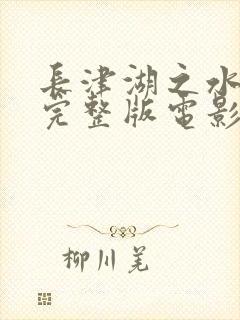 長津湖之水
完整版電影
柳川羌